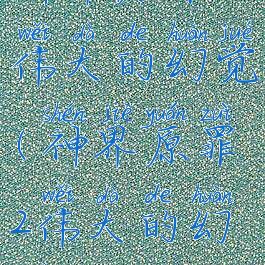 wěi dà de huàn jué
伟大的幻觉
shén jiè yuán zuì
(神界原罪
wěi dà de huàn
2伟大的幻